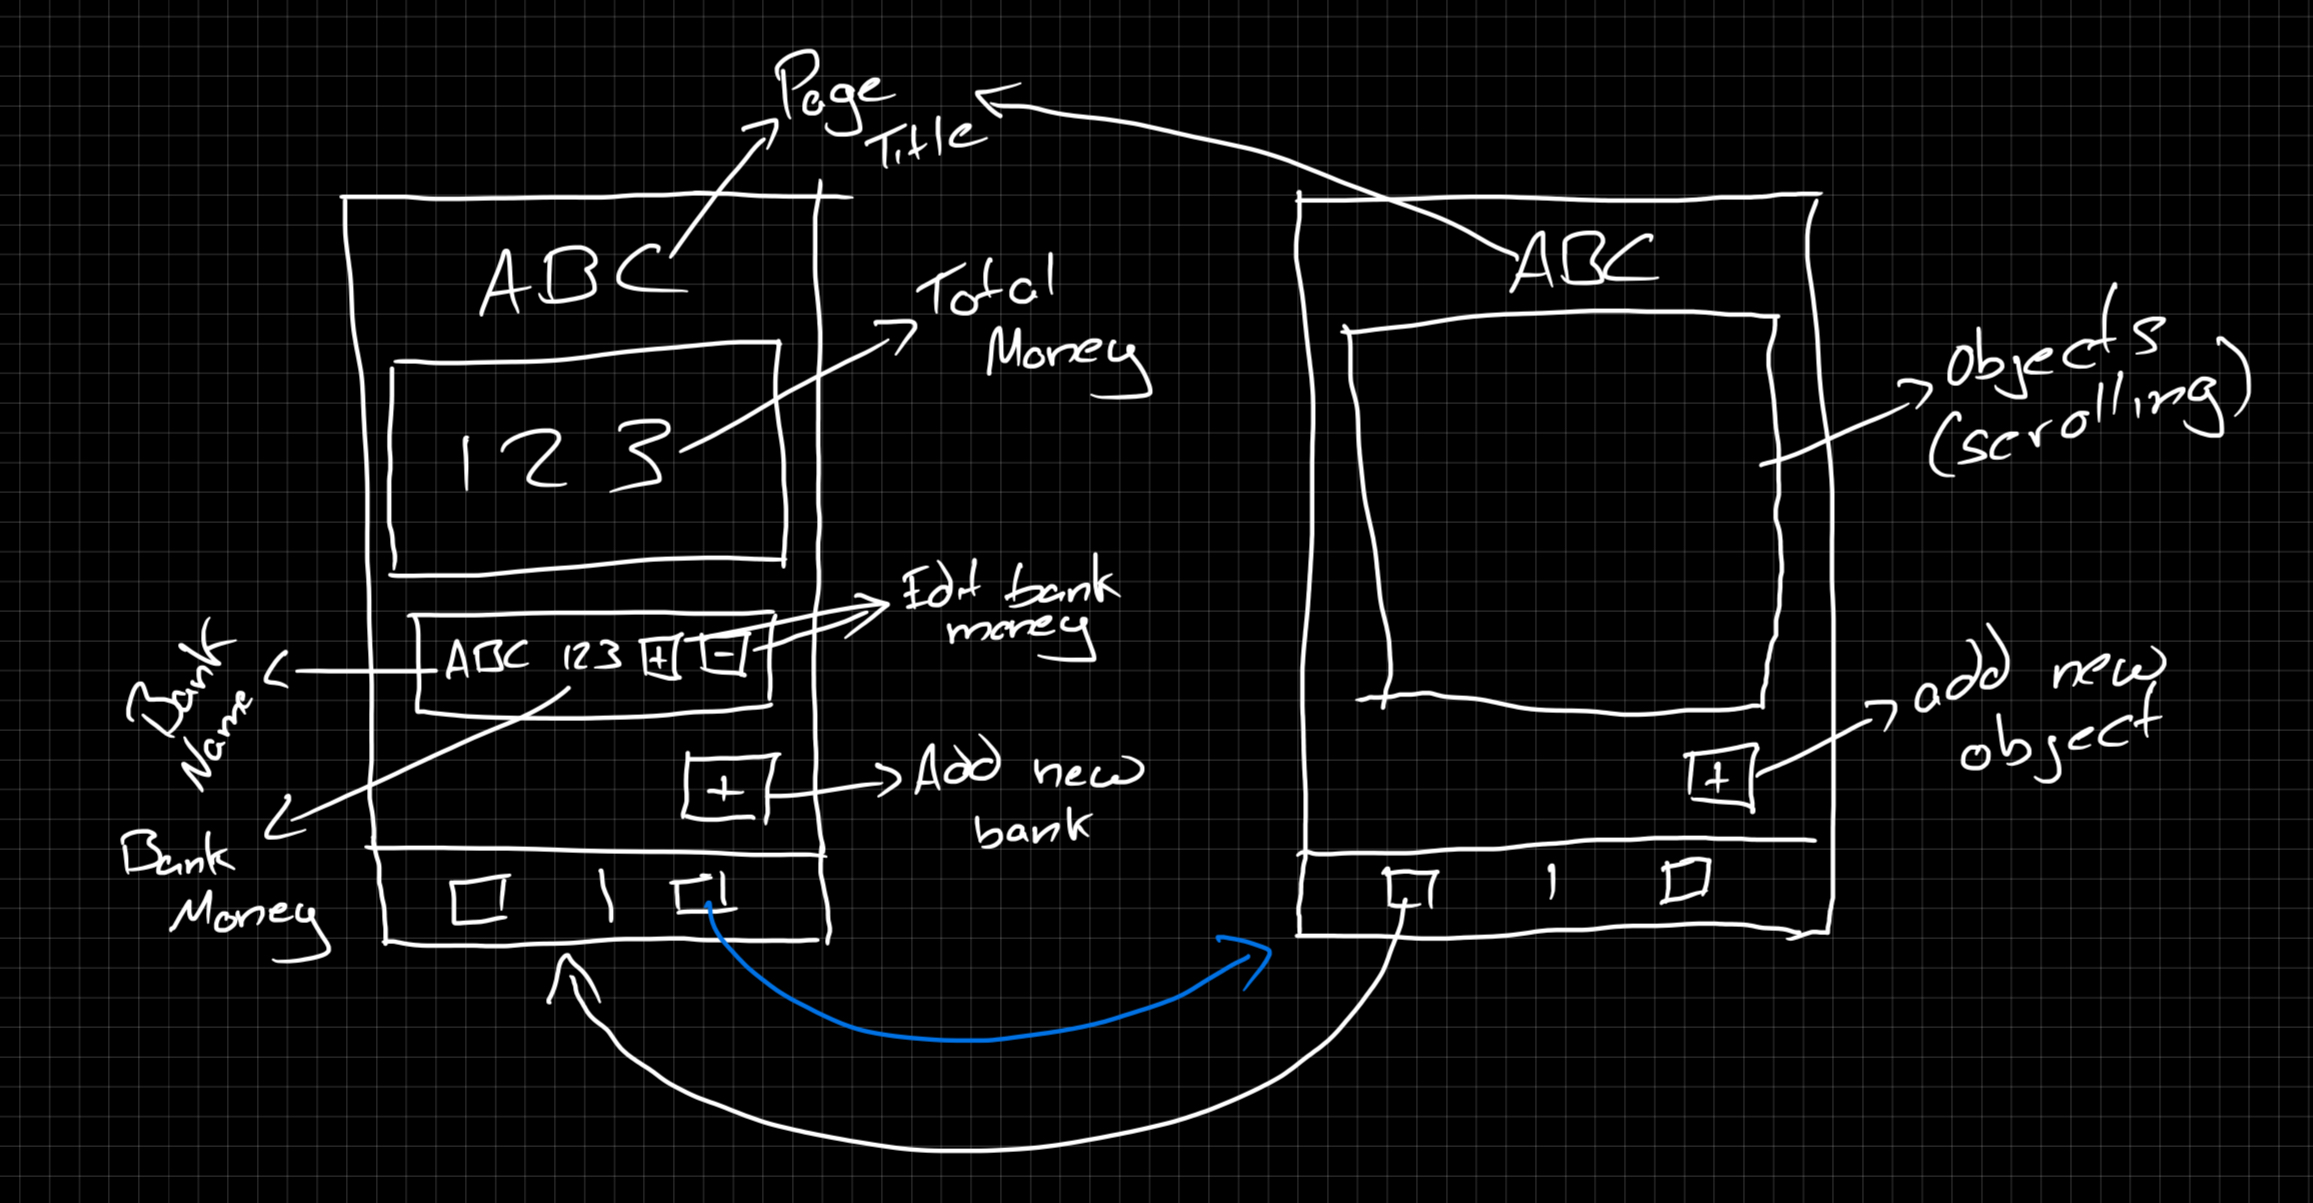 Page
Title
ABC
Total
Money
123
Edit bank
money
ABC 123 + -
Bank
Name
Bank
Money
+
Add new
bank
ABC
Objects
(scrolling)
+
add new
object